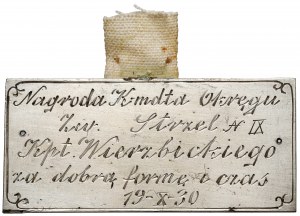 Nagroda Kmdta Okręgu
Zw. Strzel № IX
Kpt. Wierzbickiego
za dobrą formę i czas
19-X-30